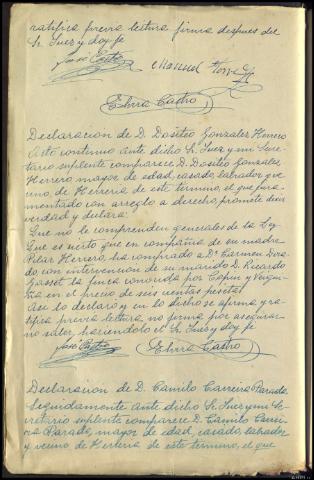 ratifica previa lectura firma despues del
Sr. Juez y doy fe
José Castro Manuel Torre
Elvira Castro
Declaracion de D. Dositeo Gonzales Herrero
Acto continuo ante dicho Sr. Juez y mi Secre-
tario suplente comparece D. Dositeo Gonzales
Herrero mayor de edad, casado, labrador y ve
cino, de Herreria de este termino, el que jura-
mentado con arreglo a derecho, promete decir
verdad y declara:
Que no le comprenden generales de la Ley
Que es cierto que en compañia de su madre
Pilar Herrero, ha comprado a Dª Carmen
do con intervencion de su marido D. Ricardo
Gasset la finca conocida por
en el precio de seis cientas pesetas
Asi lo declaró y en lo dicho se afirma y ra-
tifica previa lectura, no firma por asegurar
no saber, haciendolo el Sr. Juez y doy fe
José Castro Elvira Castro
Declaracion de D. Camilo Carreira Parada
Seguidamente ante dicho Sr. Juez y mi Se-
cretario suplente comparece D. Camilo Carrei-
ra Parada, mayor de edad, casado, labrador
y vecino de Herreria de este termino, el que